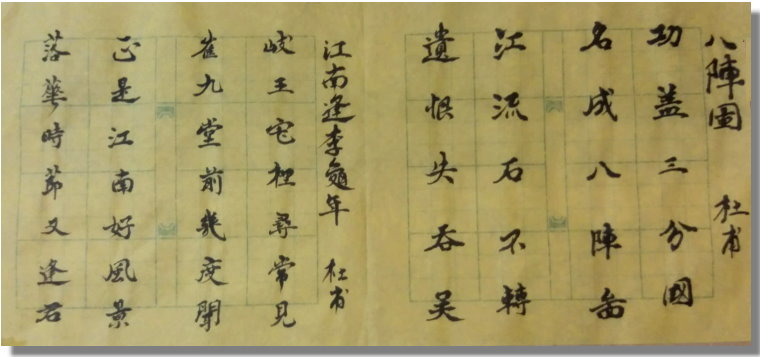 八陣圖 杜甫
功盖三分國
名成八陣啚
江流石不轉
遺恨失吞吴
江南逢李龜年 杜甫
岐王宅裡尋常見
崔九堂前幾度聞
正是江南好風景
落華時節又逢君